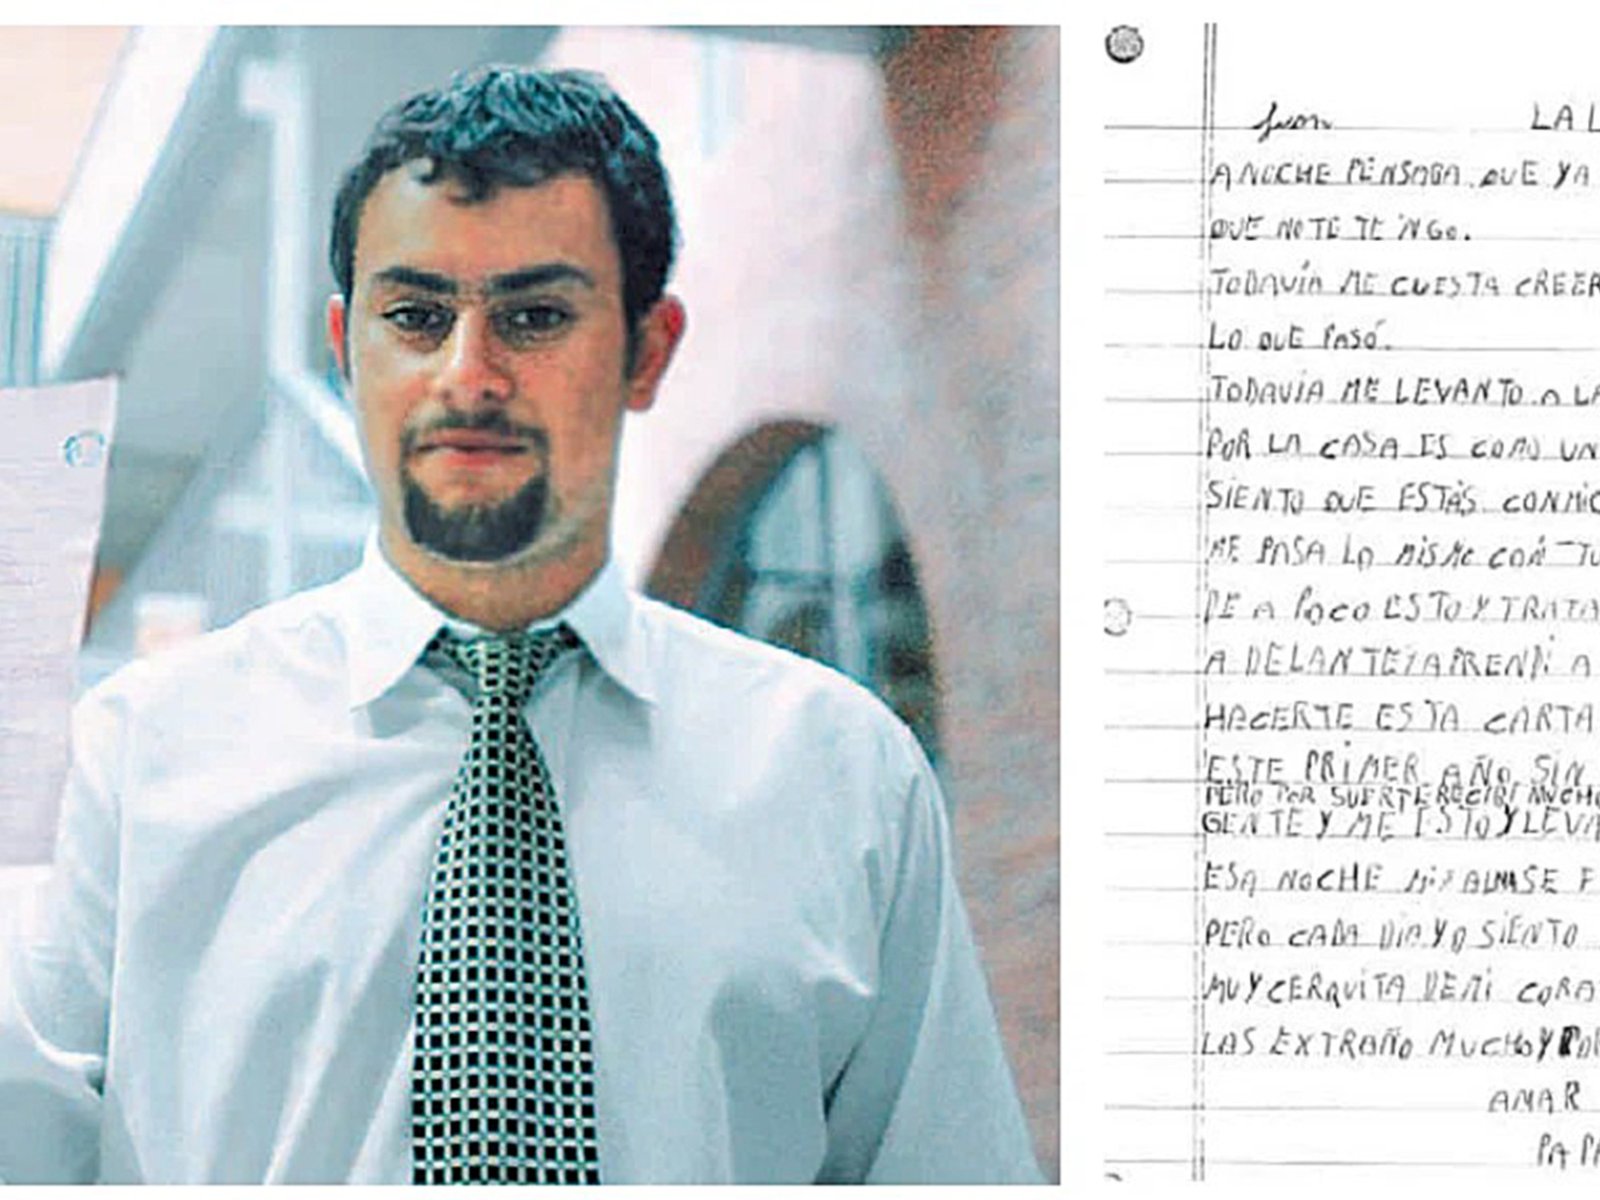 Juan LA L
ANOCHE PENSABA QUE YA
QUE NO TE TENGO.
TODAVÍA ME CUESTA CREER
LO QUE PASÓ.
TODAVÍA ME LEVANTO A LA
POR LA CASA ES COMO UN
SIENTO QUE ESTÁS CONMIG
ME PASA LO MISMO CON TU
DE A POCO ESTOY TRATA
ADELANTE Y APRENDÍ A
HACERTE ESTA CARTA
ESTE PRIMER AÑO SIN
PERO POR SUERTE RECIBÍ MUCHO
GENTE Y ME ESTOY LEVA
ESA NOCHE MI ALMA SE F
PERO CADA DÍA YO SIENTO
MUY CERQUITA DE MI CORA
LAS EXTRAÑO MUCHO Y POR
AMAR
PAPA